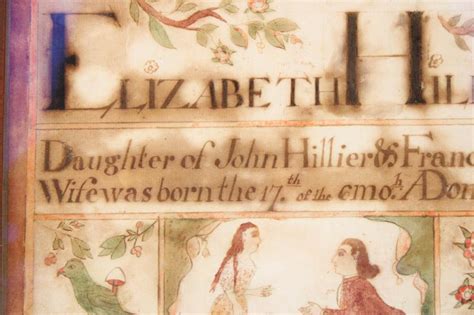 ELIZABETH HIL
Daughter of John Hillier & Franc
Wife was born the 17.th of the 6mo.h ADom